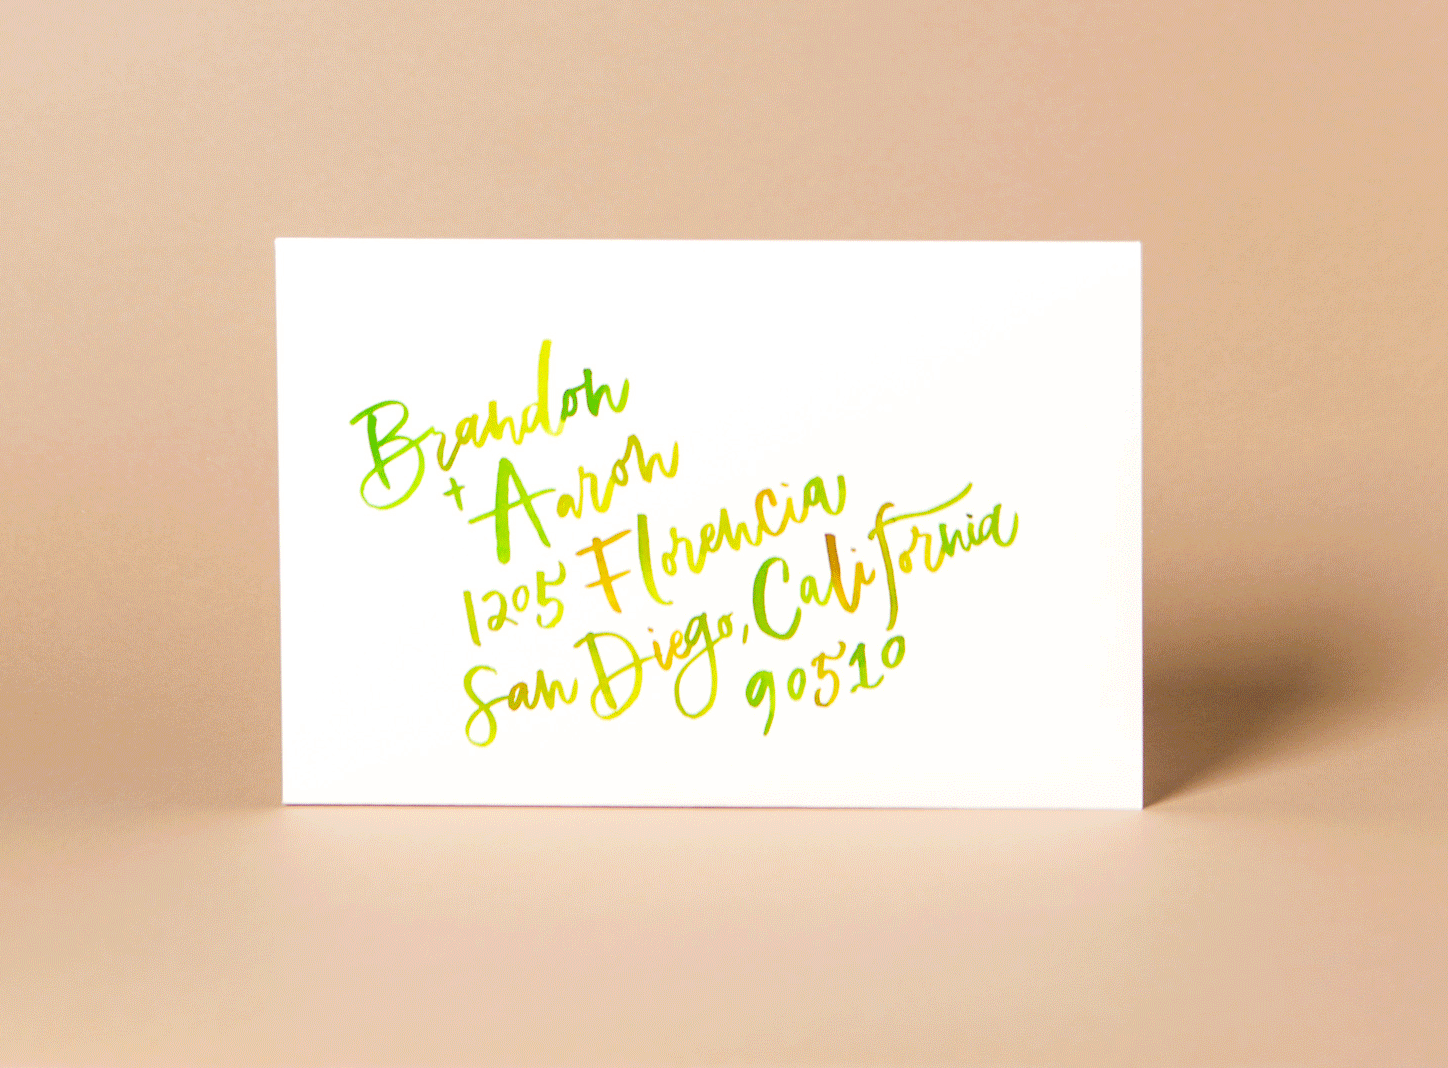 Brandon
+ Aaron
1205 Florencia
San Diego, California
90510